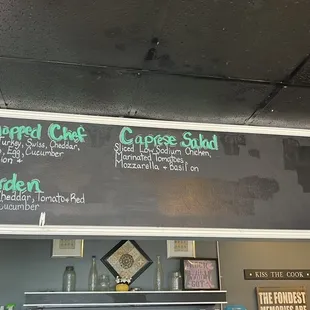 opped Chef
Turkey, Swiss, Cheddar,
Egg, Cucumber
Caprese Salad
Sliced Low Sodium Chicken,
Marinated Tomatoes,
Mozzarella + Basil on
rden
heddar, Tomato + Red
Cucumber
KISS THE COOK
THE FONDEST
MEMORIES ARE